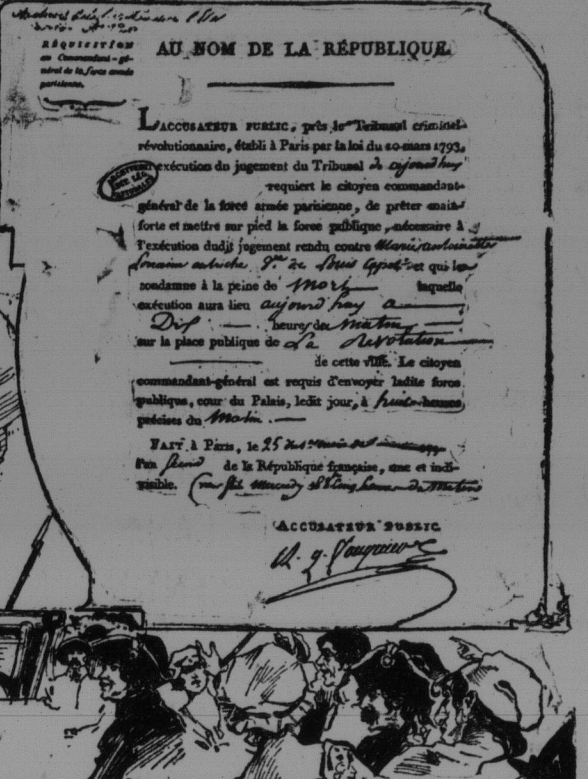 RÉQUISITION
au Commandant-gé-
néral de la force armée
parisienne.
AU NOM DE LA RÉPUBLIQUE.
L'ACCUSATEUR PUBLIC, près le Tribunal criminel-
révolutionnaire, établi à Paris par la loi du 10 mars 1793,
en exécution du jugement du Tribunal de aujourd'huy
requiert le citoyen commandant-
général de la force armée parisienne, de prêter main-
forte et mettre sur pied la force publique, nécessaire à
l'exécution dudit jugement rendu contre Marie antoinette
Loraine autriche Ve de Louis Capet et qui la
condamne à la peine de Mort laquelle
exécution aura lieu aujourd'huy à
Dix heures du Matin
sur la place publique de La Revolution
de cette ville. Le citoyen
commandant-général est requis d'envoyer ladite force
publique, cour du Palais, ledit jour, à huit heures
précises du Matin.
FAIT à Paris, le 25
l'an second de la République française, une et indi-
visible. cinq heures du Matin
ACCUSATEUR PUBLIC
A. q. Fouquier